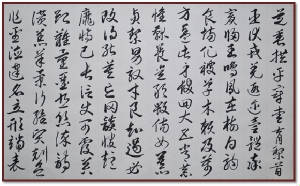 道垂拱平章愛育黎首
臣伏戎羌遐邇壹體率
賓歸王鳴鳳在樹白駒
食場化被草木賴及萬
方蓋此身髮四大五常恭
惟鞠養豈敢毀傷女慕
貞絜男效才良知過必
改得能莫忘罔談彼短
靡恃己長信使可覆器
欲難量墨悲絲染詩
讚羔羊景行維賢剋念
作聖德建名立形端表